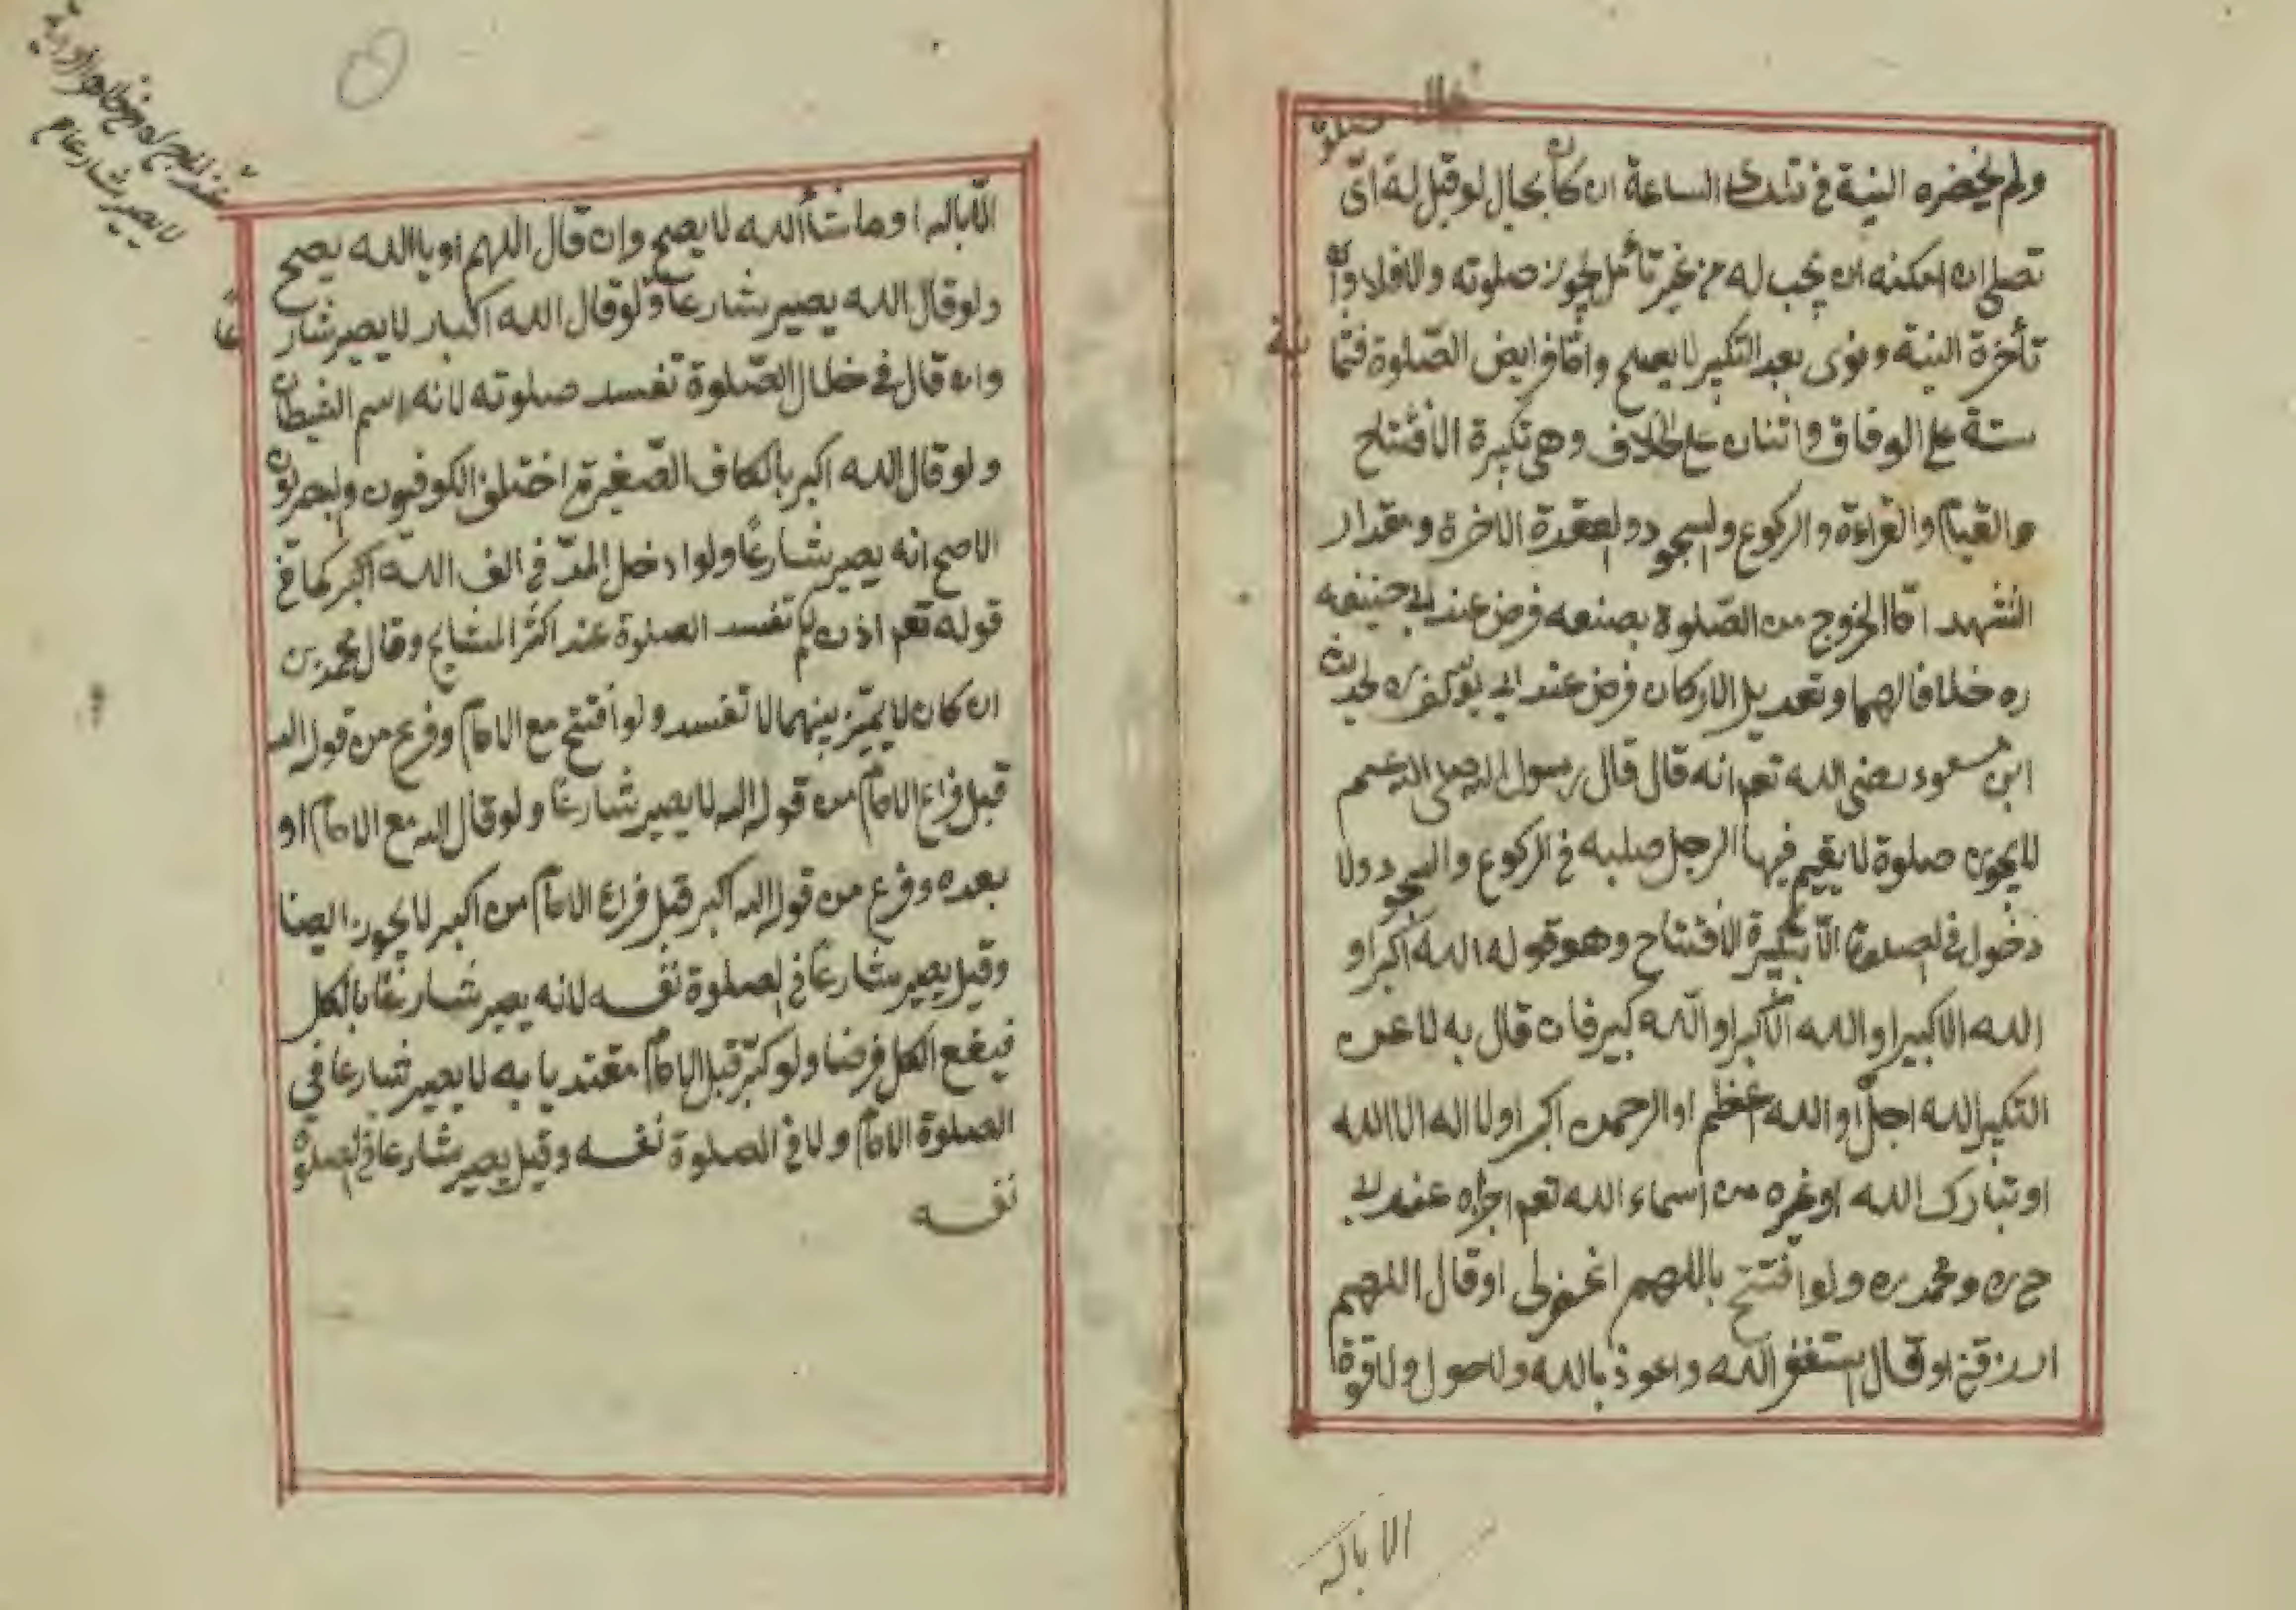 ولم يحضره النية في تلك الساعة ان كان بحال لو قيل له اى
صلوة
تصلي ان امكنه ان يجب له من غير تأمل يجوز صلوته والا فلا وان
تأخرة النية ونوى بعد التكبير لا يصلح واما فرايض الصلوة فثما
نية
ستة على الوفاق واثنان على الخلاف وهي تكبيرة الافتتاح
والقيام والقراءة والركوع والسجود والعقدة الاخرة ومقدار
التشهد اما الخروج من الصلوة بصنعه فرض عند ابي حنيفه
ره خلافا لهما وتعديل الاركان فرض عند ابي يوسف ره لحديث
ابن مسعود رضي الله تعم انه قال قال رسول الله صلى الله عم
لا يجوز صلوة لا يقيم فيها الرجل صلبه في الركوع والسجود ولا
دخول في الصلوة الا بتكبيرة الافتتاح وهو قوله الله اكبر او
الله الاكبير او الله الاكبر او الله كبير فان قال به لا عن
التكبير الله اجل او الله اعظم او الرحمن اكبر او لا اله الا الله
او تبارك الله او غيره من اسماء الله تعم اجزاه عند ابي
ح ره ومحمد ره ولو افتتح باللهم اغفرلى او قال اللهم
ارزقني او قال استغفر الله واعوذ بالله ولا حول ولا قوة
الا بالله
الا بالله او ما شأ الله لا يصح وان قال اللهم او يا الله يصح
ولو قال الله يصير شارعا ولو قال الله اكبار لا يصير شار
عًا
وان قال في خلال الصلوة تفسد صلوته لانه اسم الشيطان
ولو قال الله اكبر بالكاف الصغيرة اختلف الكوفيون والبصريون
الاصح انه يصير شارعًا ولو ادخل المد في الف الله اكبر كما في
قوله تعم اذن لكم تفسد الصلوة عند اكثر المشايخ وقال محمد بن
ان كان لا يميز بينهما لا تفسد ولو افتتح مع الامام وفرغ من قول الله
قبل فراغ الامام من قول الله لا يصير شارعًا ولو قال الله مع الامام او
بعده وفرغ من قول الله اكبر قبل فراغ الامام من اكبر لا يجوز ايضا
وقيل يصير شارعًا في الصلوة نفسه لانه يصير شارعًا بالكل
فيقع الكل فرضا ولو كبر قبل الامام مقتديا به لا يصير شارعا في
الصلوة الامام ولا في الصلوة نفسه وقيل يصير شارعا في الصلوة
نفسه
لا يصير شارعا